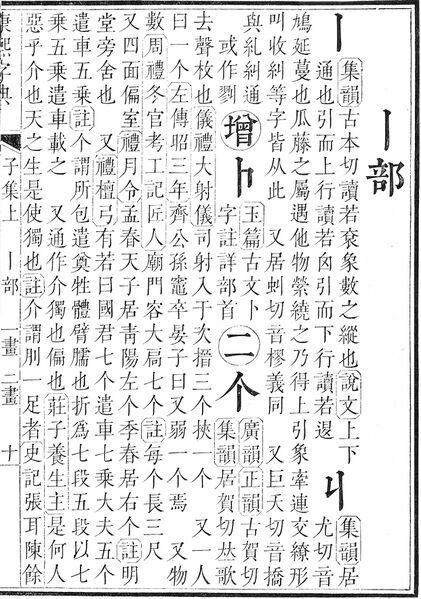 丨部
丨
集韻古本切讀若袞象數之縱也說文上下
通也引而上行讀若囟引而下行讀若𨓤
丩
集韻居
尤切音
鳩延蔓也瓜藤之屬遇他物縈繞之乃得上引象牽連交繚形
叫收糾等字皆从此 又居虯切音樛義同 又巨夭切音撟
與糺糾通
或作㔄
增
玉篇古文卜
字註詳部首
二
个
廣韻正韻古賀切
集韻居賀切𠀤歌
去聲枚也儀禮大射儀司射入于次搢三个挾一个 又一人
曰一个左傳昭三年齊公孫竈卒晏子曰又弱一个焉 又物
數周禮冬官考工記匠人廟門容大扃七个註每个長三尺
又四面偏室禮月令孟春天子居靑陽左个季春居右个註明
堂旁舍也 又禮檀弓有若曰國君七个遣車七乗大夫五个
遣車五乗註个謂所包遣奠牲體臂臑也折爲七段五段以七
乗五乗遣車載之 又通作介獨也偏也莊子養生主是何人
惡乎介也天之生是使獨也註介謂刖一足者史記張耳陳餘
康熙字典 子集上 丨部 一畫 二畫 十